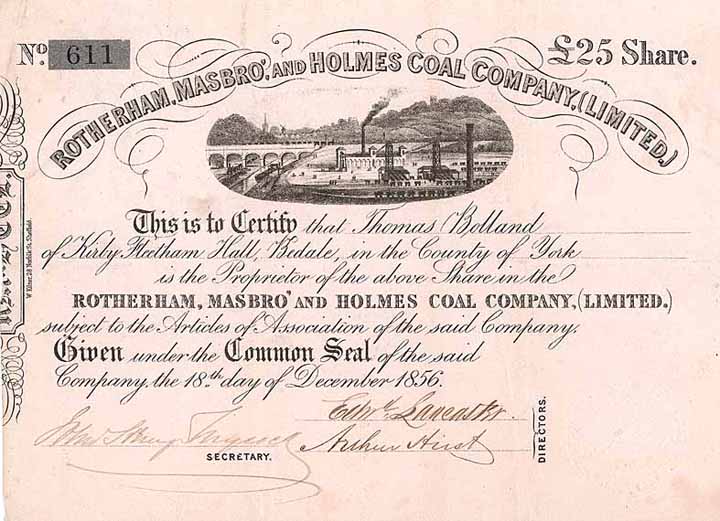 No. 611
£25 Share.
ROTHERHAM, MASBRO', AND HOLMES COAL COMPANY, (LIMITED.)
This is to Certify that Thomas Bolland
of Kirby Fleetham Hall, Bedale, in the County of York
is the Proprietor of the above Share in the
ROTHERHAM, MASBRO' AND HOLMES COAL COMPANY, (LIMITED.)
subject to the Articles of Association of the said Company.
Given under the Common Seal of the said
Company, the 18th day of December 1856.
Edwd. Lancaster.
Arthur Hirst
DIRECTORS.
SECRETARY.